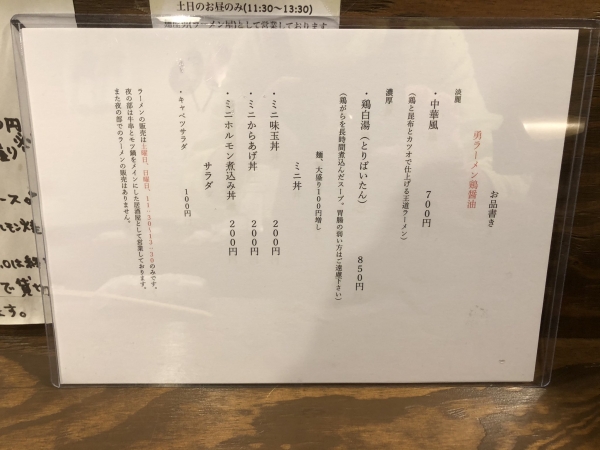 土日のお昼のみ(11:30〜13:30)
お品書き
勇ラーメン鶏醤油
淡麗
・中華風　700円
（鶏と昆布とカツオで仕上げる王道ラーメン）
濃厚
・鶏白湯（とりぱいたん）　850円
（鶏がらを長時間煮込んだスープ。胃腸の弱い方はご遠慮下さい）
麺、大盛り100円増し
ミニ丼
・ミニ味玉丼　200円
・ミニからあげ丼　200円
・ミニホルモン煮込み丼　200円
サラダ
・キャベツサラダ　100円
ラーメンの販売は土曜日、日曜日、11:30〜13:30のみです。
夜の部は牛串とモツ鍋をメインにした居酒屋として営業しております。
また夜の部でのラーメンの販売はありません。